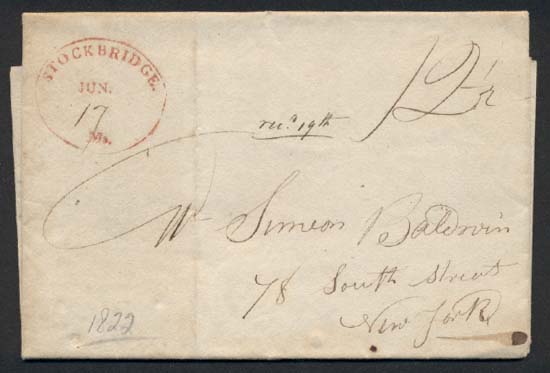 STOCKBRIDGE.
JUN.
17
Ms.
12½
recd 19th
Mr Simeon Baldwin
78 South Street
New York
1822